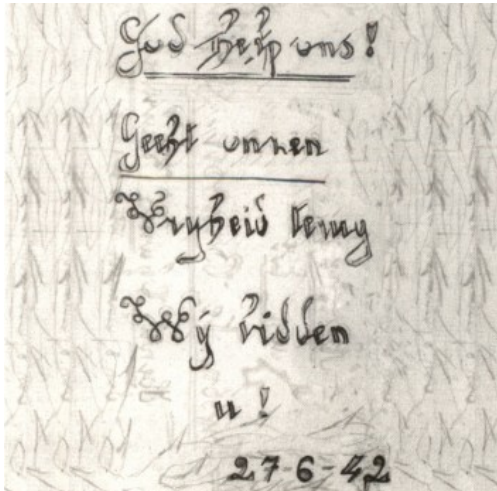 God Help ons!
Geeft onnen
Vryheid terug
Wÿ bidden
u!
27-6-42